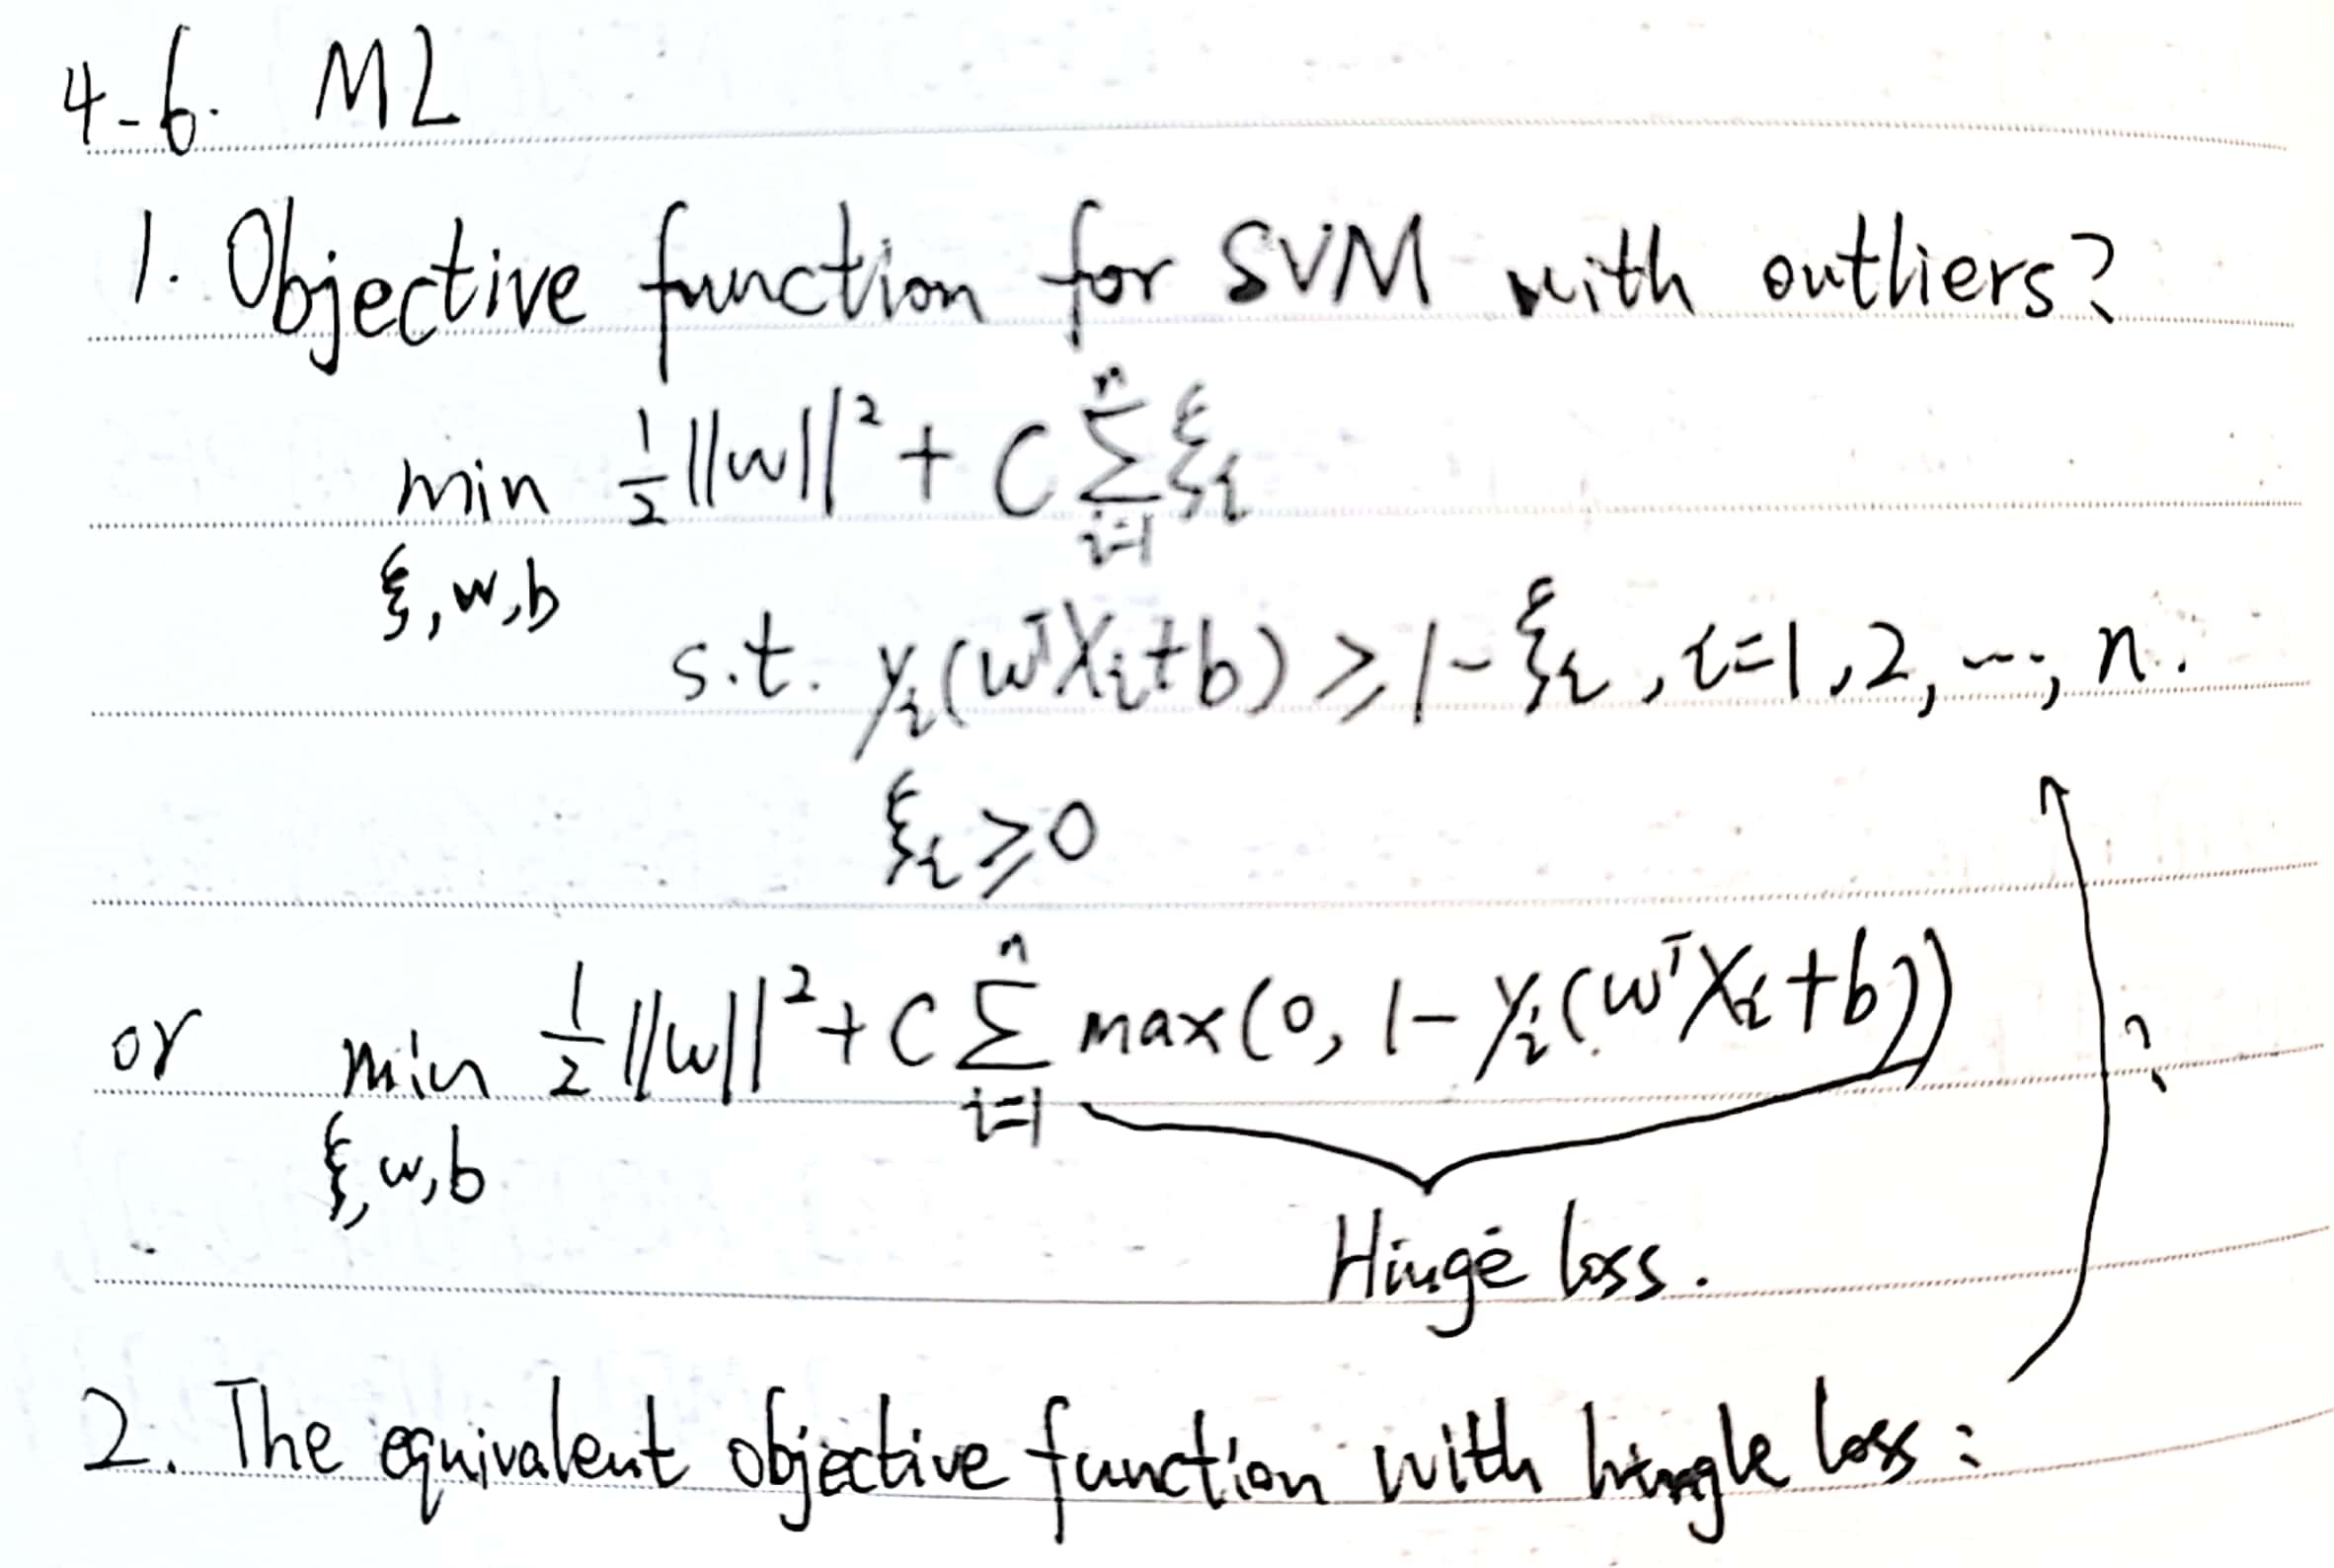 4-6. ML
1. Objective function for SVM with outliers?
min ½||w||² + C Σⁿᵢ₌₁ ξᵢ
ξ, w, b
s.t. yᵢ(wᵀXᵢ+b) ≥ 1-ξᵢ, i=1,2,…, n.
ξᵢ ≥ 0
or min ½||w||² + C Σⁿᵢ₌₁ max(0, 1- yᵢ(wᵀXᵢ+b)) ?
ξ, w, b
Hinge loss.
2. The equivalent objective function with hingle loss: